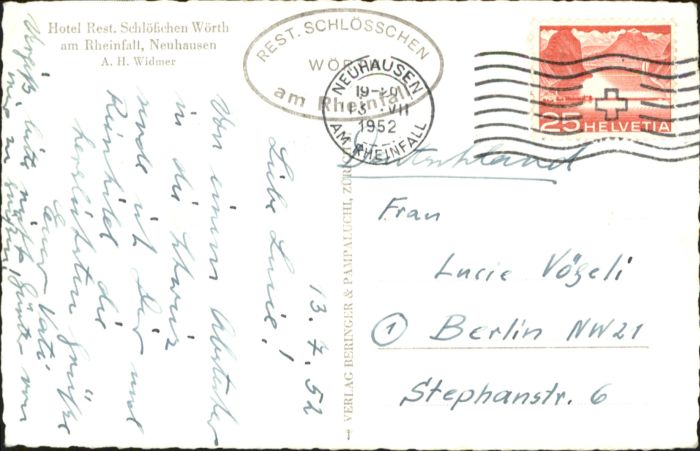 Hotel Rest. Schlößchen Wörth
am Rheinfall, Neuhausen
A. H. Widmer
REST. SCHLÖSSCHEN
WÖRTH
am Rheinfall
NEUHAUSEN
19-20
13. VII
1952
AM RHEINFALL
25 HELVETIA
Deutschland
Frau
Lucie Vögeli
① Berlin NW21
Stephanstr. 6
VERLAG BERINGER & PAMPALUCHI, ZÜRICH
13. 7. 52
Liebe Lucie!
Von einem Abstecher
in die Schweiz
sende ich Dir und
die
herzlichsten Grüße
Euer Vati